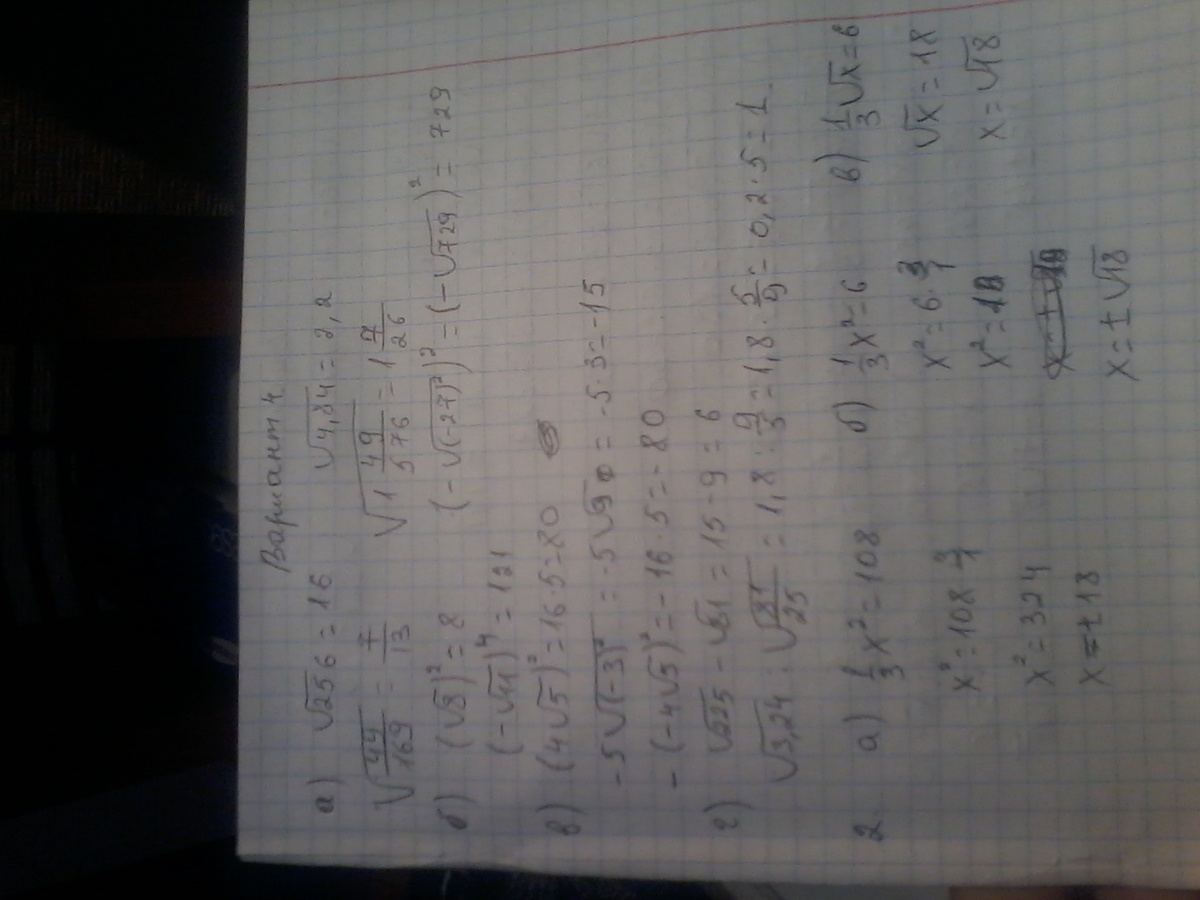 Вариант 4
а) √256 = 16 √4,84 = 2,2
√(49/169) = 7/13 √(1 49/576) = 1 7/26
б) (√8)² = 8 (-√(-27)²)² = (-√729)² = 729
(-√11)⁴ = 121
в) (4√5)² = 16·5 = 80
-5√(-3)² = -5√9 = -5·3 = -15
-(-4√5)² = -16·5 = -80
г) √225 - √81 = 15 - 9 = 6
√3,24 : √(81/25) = 1,8 : 9/5 = 1,8 · 5/9 = 0,2·5 = 1
2 а) 1/3 x² = 108 б) 1/3 x² = 6 в) 1/3 √x = 6
x² = 108 3/1 x² = 6 · 3/1 √x = 18
x² = 324 x² = 18 x = √18
x = ±18 x = ±√18